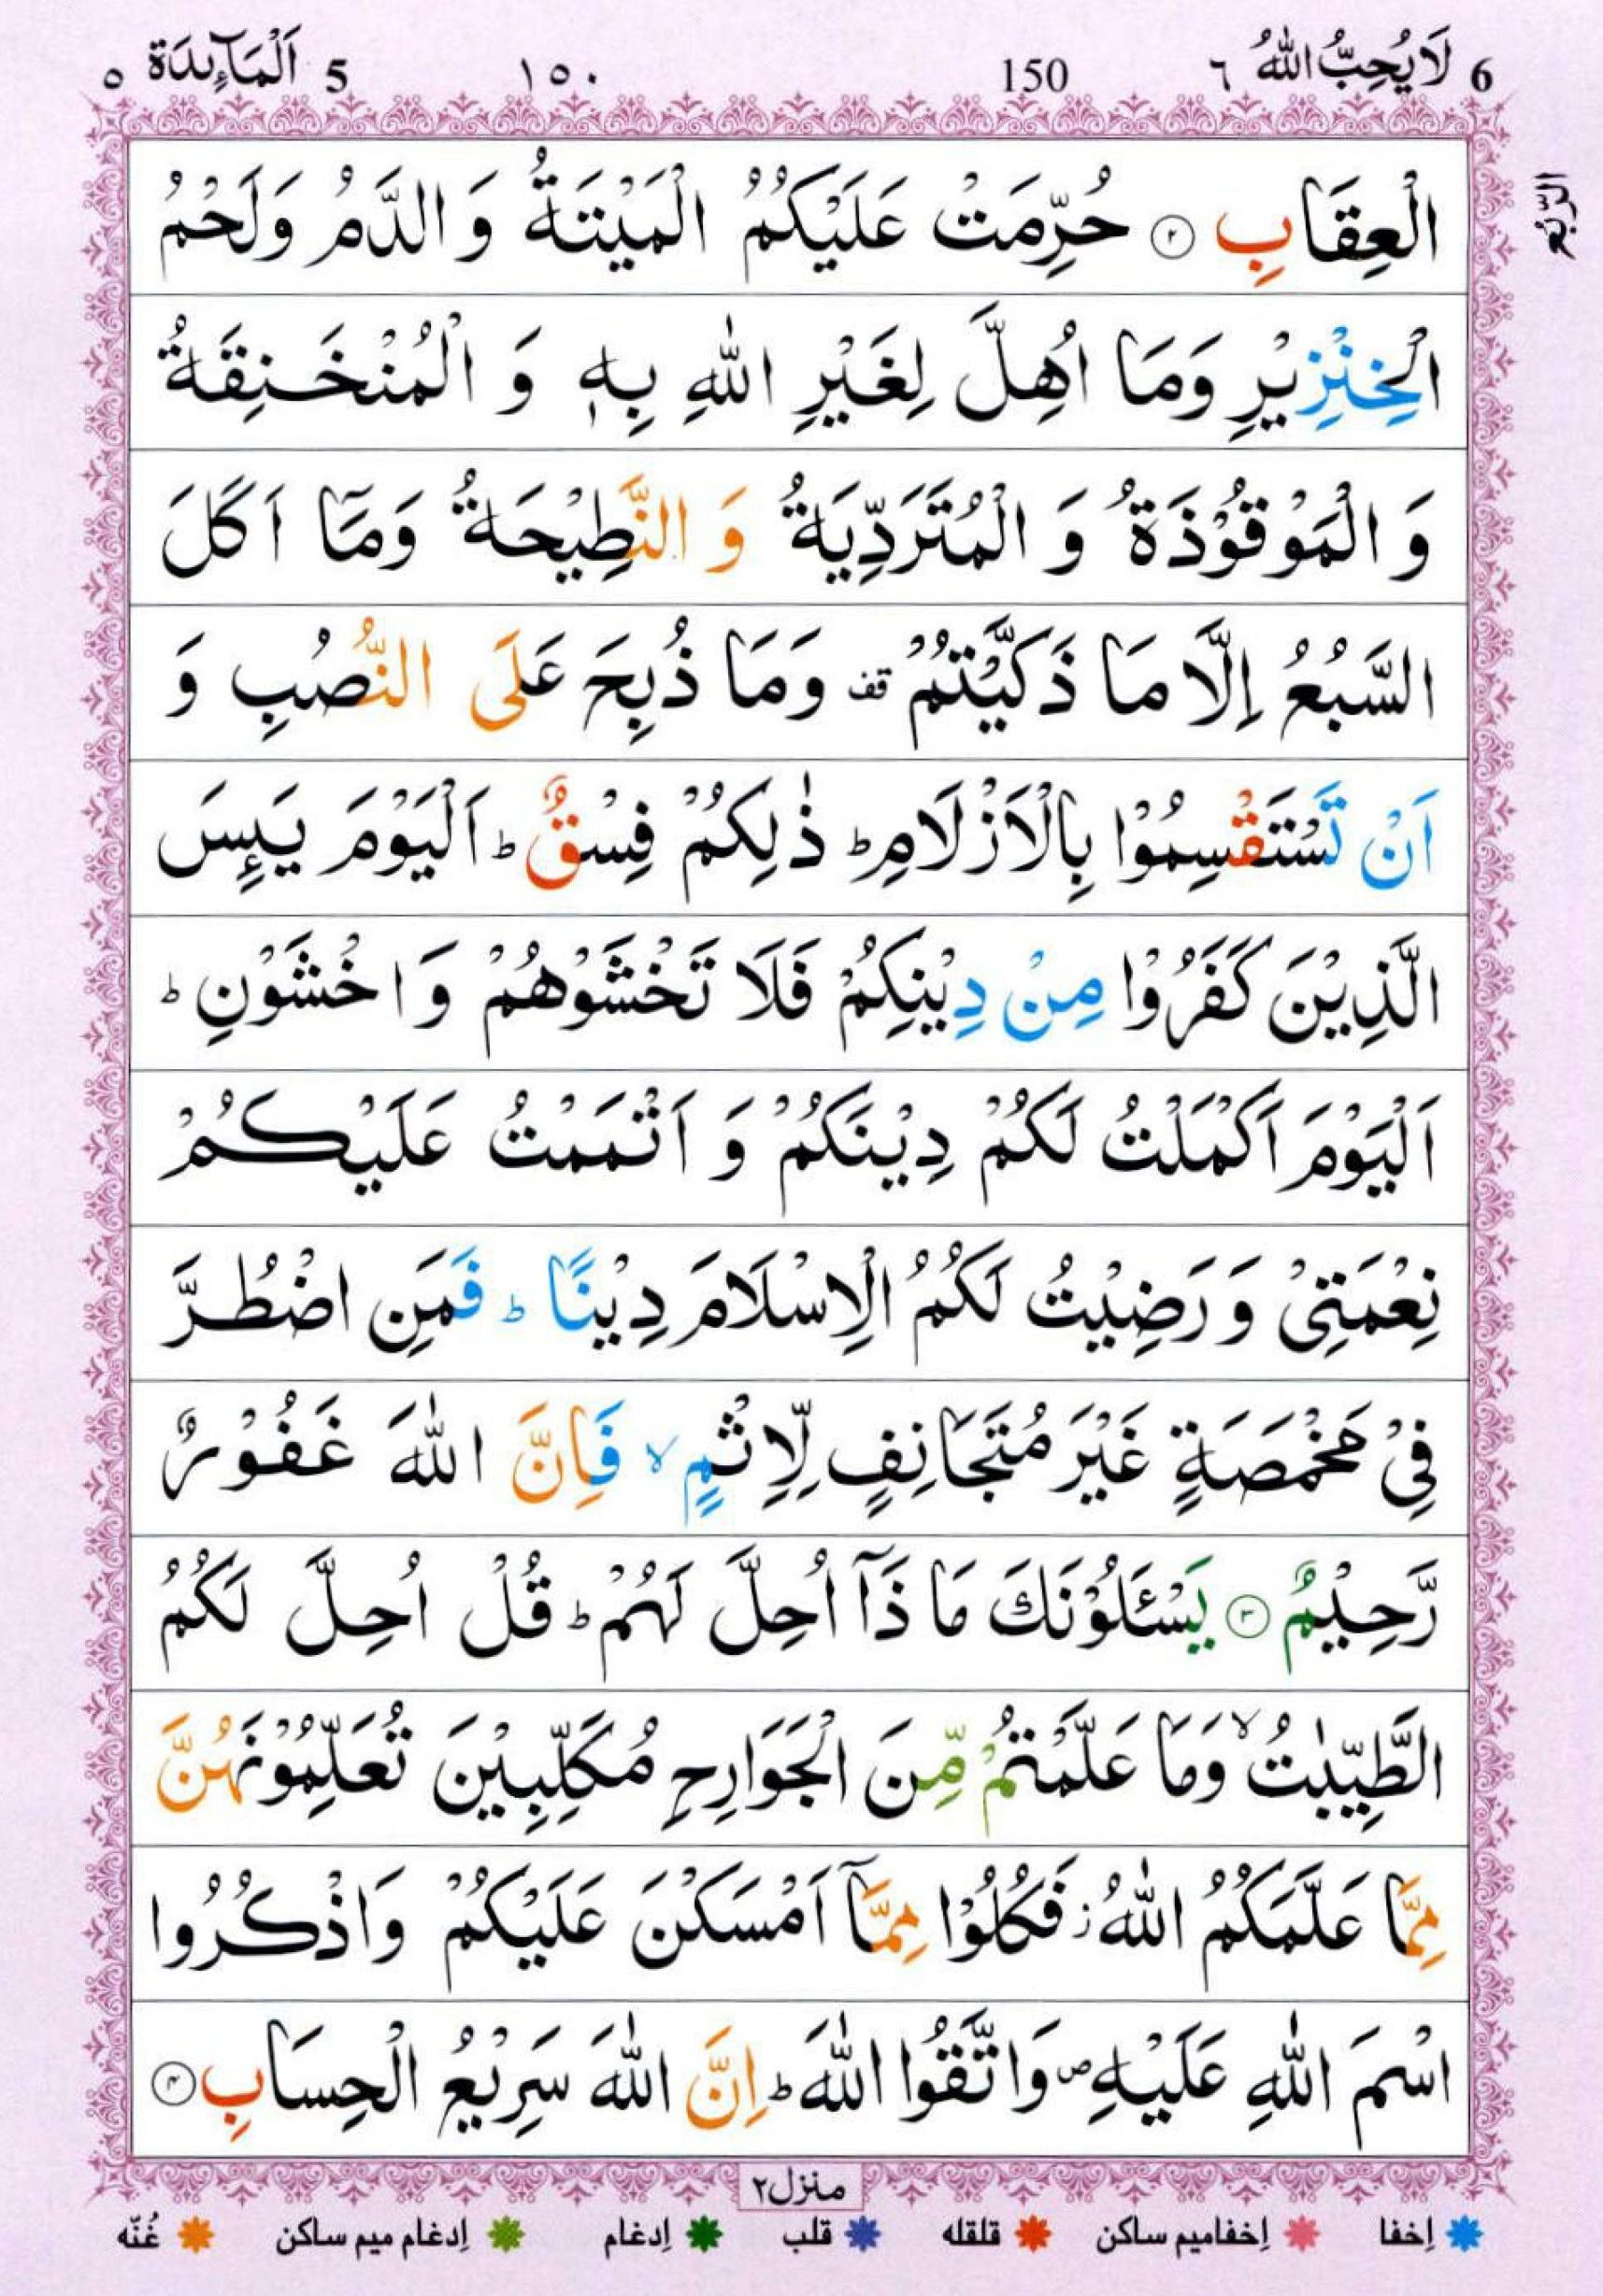 6 لَا يُحِبُّ اللّٰهُ ٦ 150 ١٥٠ 5 اَلْمَآئِدَة ٥
الرّبع
الْعِقَابِ ۝٢ حُرِّمَتْ عَلَيْكُمُ الْمَيْتَةُ وَ الدَّمُ وَلَحْمُ
الْخِنْزِيْرِ وَمَا اُهِلَّ لِغَيْرِ اللّٰهِ بِهٖ وَ الْمُنْخَنِقَةُ
وَ الْمَوْقُوْذَةُ وَ الْمُتَرَدِّيَةُ وَ النَّطِيْحَةُ وَمَاۤ اَكَلَ
السَّبُعُ اِلَّا مَا ذَكَّيْتُمْ قف وَمَا ذُبِحَ عَلَى النُّصُبِ وَ
اَنْ تَسْتَقْسِمُوْا بِالْاَزْلَامِ ؕ ذٰلِكُمْ فِسْقٌ ؕ اَلْيَوْمَ يَئِسَ
الَّذِيْنَ كَفَرُوْا مِنْ دِيْنِكُمْ فَلَا تَخْشَوْهُمْ وَ اخْشَوْنِ ؕ
اَلْيَوْمَ اَكْمَلْتُ لَكُمْ دِيْنَكُمْ وَ اَتْمَمْتُ عَلَيْكُمْ
نِعْمَتِيْ وَ رَضِيْتُ لَكُمُ الْاِسْلَامَ دِيْنًا ؕ فَمَنِ اضْطُرَّ
فِيْ مَخْمَصَةٍ غَيْرَ مُتَجَانِفٍ لِّاِثْمٍ ۙ فَاِنَّ اللّٰهَ غَفُوْرٌ
رَّحِيْمٌ ۝٣ يَسْـَٔلُوْنَكَ مَا ذَاۤ اُحِلَّ لَهُمْ ؕ قُلْ اُحِلَّ لَكُمُ
الطَّيِّبٰتُ ۙ وَمَا عَلَّمْتُمْ مِّنَ الْجَوَارِحِ مُكَلِّبِيْنَ تُعَلِّمُوْنَهُنَّ
مِمَّا عَلَّمَكُمُ اللّٰهُ ز فَكُلُوْا مِمَّاۤ اَمْسَكْنَ عَلَيْكُمْ وَاذْكُرُوا
اسْمَ اللّٰهِ عَلَيْهِ ص وَاتَّقُوا اللّٰهَ ؕ اِنَّ اللّٰهَ سَرِيْعُ الْحِسَابِ ۝٤
منزل٢
اِخفا اِخفامیم ساکن قلقله قلب اِدغام اِدغام میم ساکن غُنّه